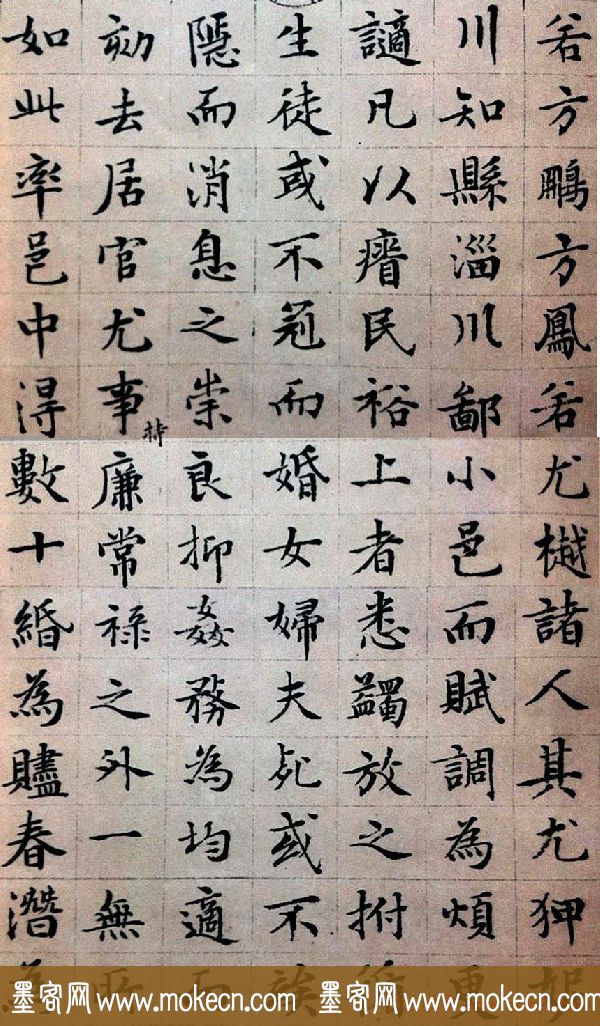 若方鵬方鳳若尤樾諸人其尤狎
川知縣淄川鄙小邑而賦調為煩
讁凡以瘠民裕上者悉蠲放之拊
生徒或不冠而婚女婦夫死或不
隱而消息之崇良抑姦務為均適
劾去居官尤事持廉常祿之外一無
如此率邑中得數十緡為贐春潛
墨客网 www.mokecn.com 墨客网 www.mokecn.com